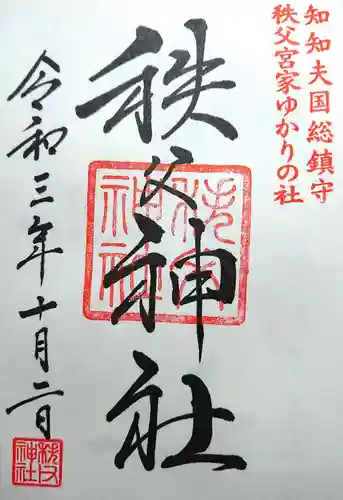 知知夫国総鎮守
秩父宮家ゆかりの社
秩父神社
令和三年十月二日
秩父
神社
秩父
神社